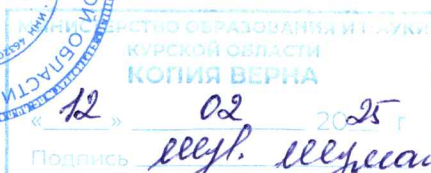 МИНИСТЕРСТВО ОБРАЗОВАНИЯ И НАУКИ
КУРСКОЙ ОБЛАСТИ
КОПИЯ ВЕРНА
« 12 » 02 2025 г
Подпись
ОЙ ОБЛАСТИ
ИНН 4632